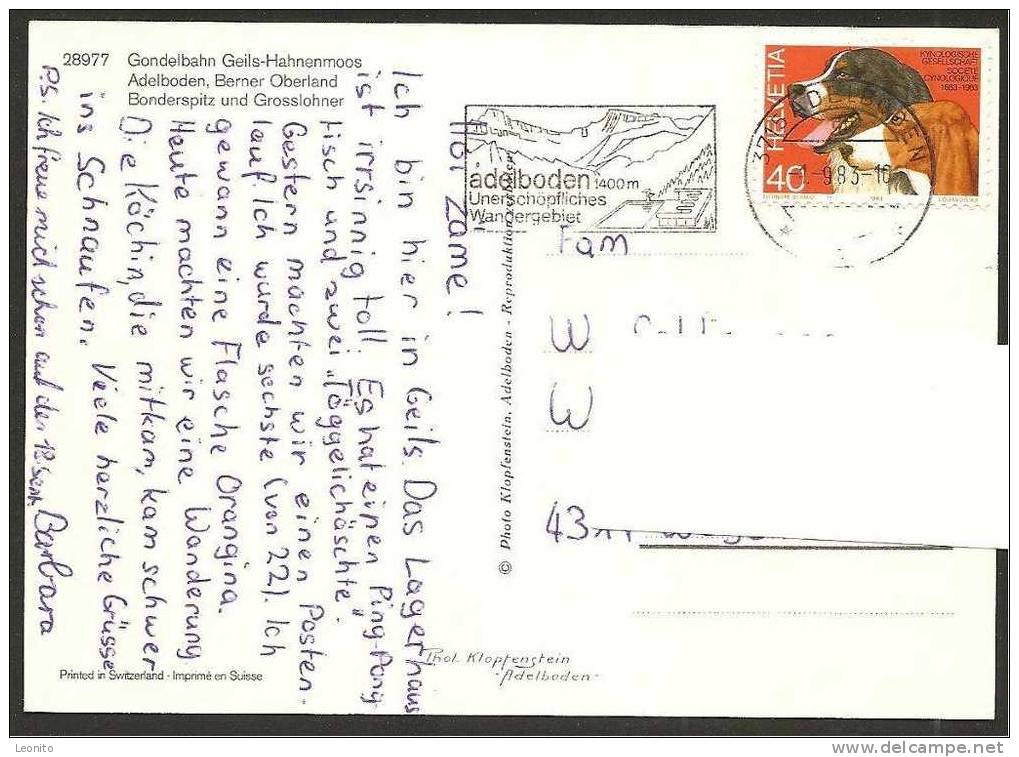 28977 Gondelbahn Geils-Hahnenmoos
Adelboden, Berner Oberland
Bonderspitz und Grosslohner
Hoi zäme!
Ich bin hier in Geils. Das Lagerhaus
ist irrsinnig toll. Es hat einen Ping-Pong
tisch und zwei „Töggelichäschte".
Gestern machten wir einen Posten-
lauf. Ich wurde sechste (von 22). Ich
gewann eine Flasche Orangina.
Heute machten wir eine Wanderung
Die Köchin, die mitkam, kam schwer
ins Schnaufen. Viele herzliche Grüsse
Barbara
P.S. Ich freue mich schon auf den 18. Sept.
adelboden 1400m
Unerschöpfliches
Wandergebiet
HELVETIA
40
KYNOLOGISCHE
GESELLSCHAFT
SOCIÉTÉ
CYNOLOGIQUE
1883-1983
ADELBODEN
-9.83-10
Fam
W
W
43
© Photo Klopfenstein, Adelboden - Reproduktion
Phot. Klopfenstein
-Adelboden-
Printed in Switzerland - Imprimé en Suisse
Leonito
http://www.delcampe.net